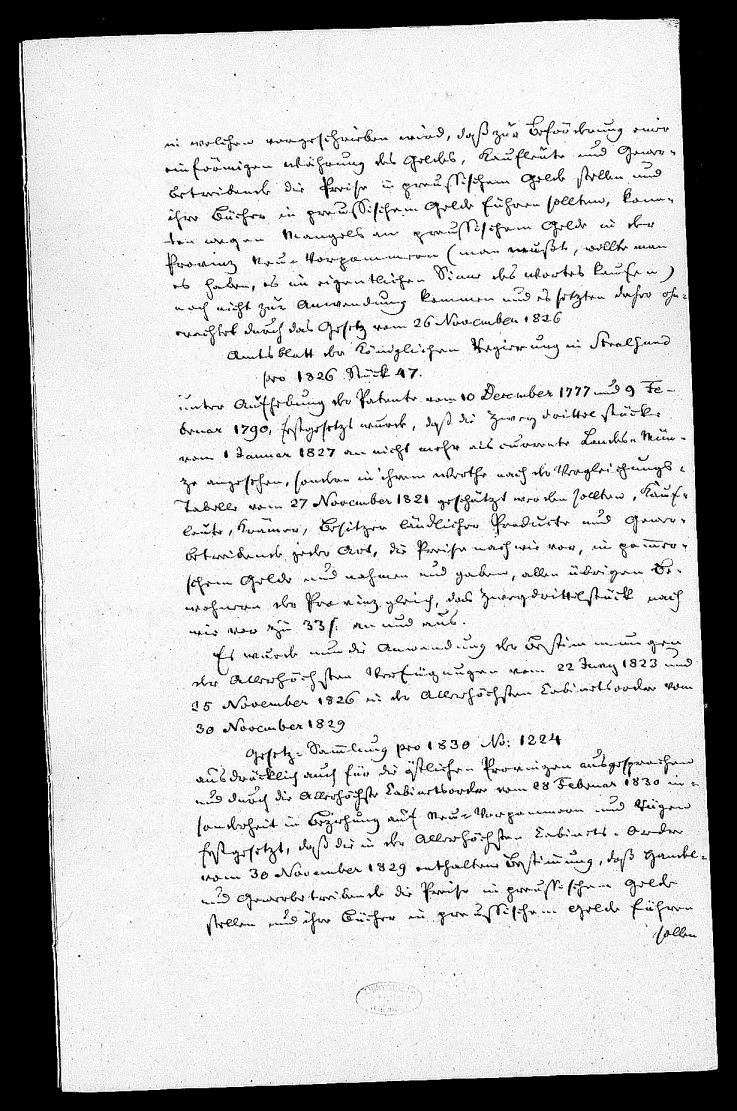 in welchen vorgeschrieben wird, daß zur Beförderung einer
einförmigen Währung des Geldes, Kaufleute und Gewer-
betreibende die Preise in preussischem Gelde stellen und
ihre Bücher in preussischem Gelde führen sollten, konn-
ten wegen Mangels an preussischem Gelde in der
Provinz Neu-Vorpommern (man mußte, wollte man
es haben, es im eigentlichen Sinne des Wortes kaufen)
noch nicht zur Anwendung kommen und es setzten daher ohn-
erachtet durch das Gesetz vom 26 November 1826
Amtsblatt der Königlichen Regierung in Stralsund
pro 1826 Stück 47.
unter Aufhebung der Patente vom 10 December 1777 und 9 Fe-
bruar 1790, festgesetzt wurde, daß die Zweydrittelstücke
vom 1 Januar 1827 an nicht mehr als currente Landes-Mün-
ze angesehen, sondern in ihrem Werthe nach der Vergleichungs-
Tabelle vom 27 November 1821 geschätzt werden sollten, Kauf-
leute, Krämer, Besitzer ländlicher Producte und Gewer-
betreibende jeder Art, die Preise nach wie vor, in pommer-
schem Gelde und nahmen und gaben, allen übrigen Be-
wohnern der Provinz gleich, das Zweydrittelstück nach
wie vor zu 33 ß. an und aus.
Es wurde nun die Anwendung der Bestimmungen
der Allerhöchsten Verfügungen vom 22 Juny 1823 und
25 November 1826 in der Allerhöchsten Cabinetsorder vom
30 November 1829
Gesetz-Sammlung pro 1830 No: 1224
ausdrücklich auch für die östlichen Provinzen ausgesprochen
und durch die Allerhöchste Cabinetsorder vom 28 Februar 1830 in-
sonderheit in Beziehung auf Neu-Vorpommern und Rügen
festgesetzt, daß die in der Allerhöchsten Cabinets-Order
vom 30 November 1829 enthaltene Bestimmung, daß Handel-
und Gewerbetreibende die Preise in preussischem Gelde
stellen und ihre Bücher in preussischem Gelde führen
sollen